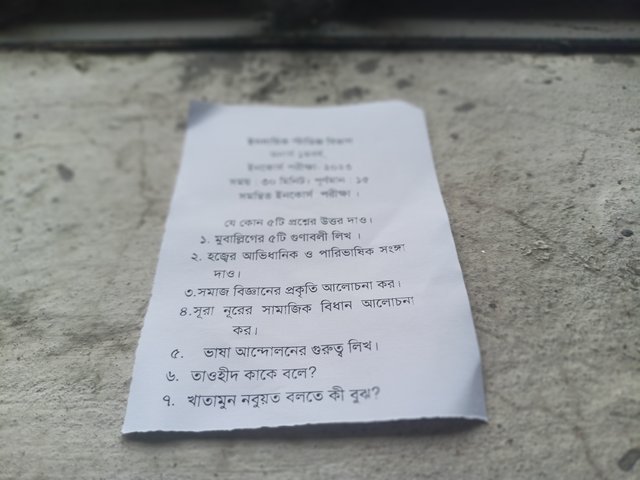 ইসলামিক স্টাডিজ বিভাগ
ইনকোর্স পরীক্ষা-
সময় : ৩০ মিনিট। পূর্ণমান : ১৫
সমন্বিত ইনকোর্স পরীক্ষা ।
যে কোন ৫টি প্রশ্নের উত্তর দাও।
১. মুবাল্লিগের ৫টি গুণাবলী লিখ ।
২. হজ্বের আভিধানিক ও পারিভাষিক সংজ্ঞা
দাও।
৩.সমাজ বিজ্ঞানের প্রকৃতি আলোচনা কর।
৪.সূরা নূরের সামাজিক বিধান আলোচনা
কর।
৫. ভাষা আন্দোলনের গুরুত্ব লিখ।
৬. তাওহীদ কাকে বলে?
৭. খাতামুন নবুয়ত বলতে কী বুঝ?